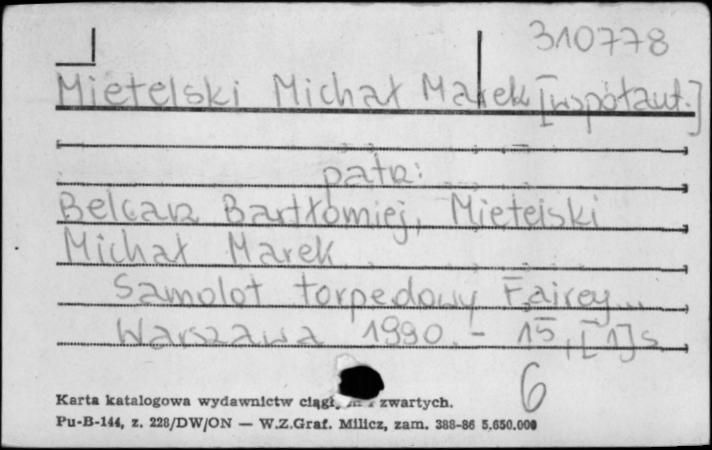 310778
Mietelski Michał Marek [współaut.]
patrz:
Belcarz Bartłomiej, Mietelski
Michał Marek
Samolot torpedowy Fairey...
Warszawa 1990. - 15, [1] s
6
Karta katalogowa wydawnictw zwartych.
Pu-B-144, z. 228/DW/ON — W.Z.Graf. Milicz, zam. 388-86 5.650.000